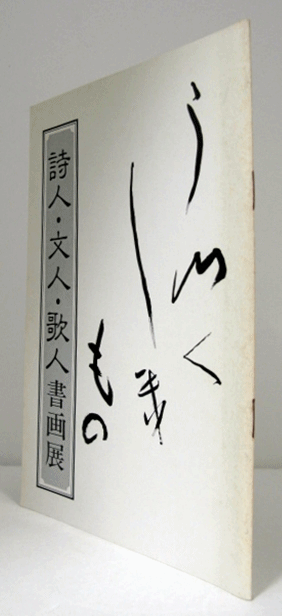 うつく
しき
もの
詩人・文人・歌人書画展